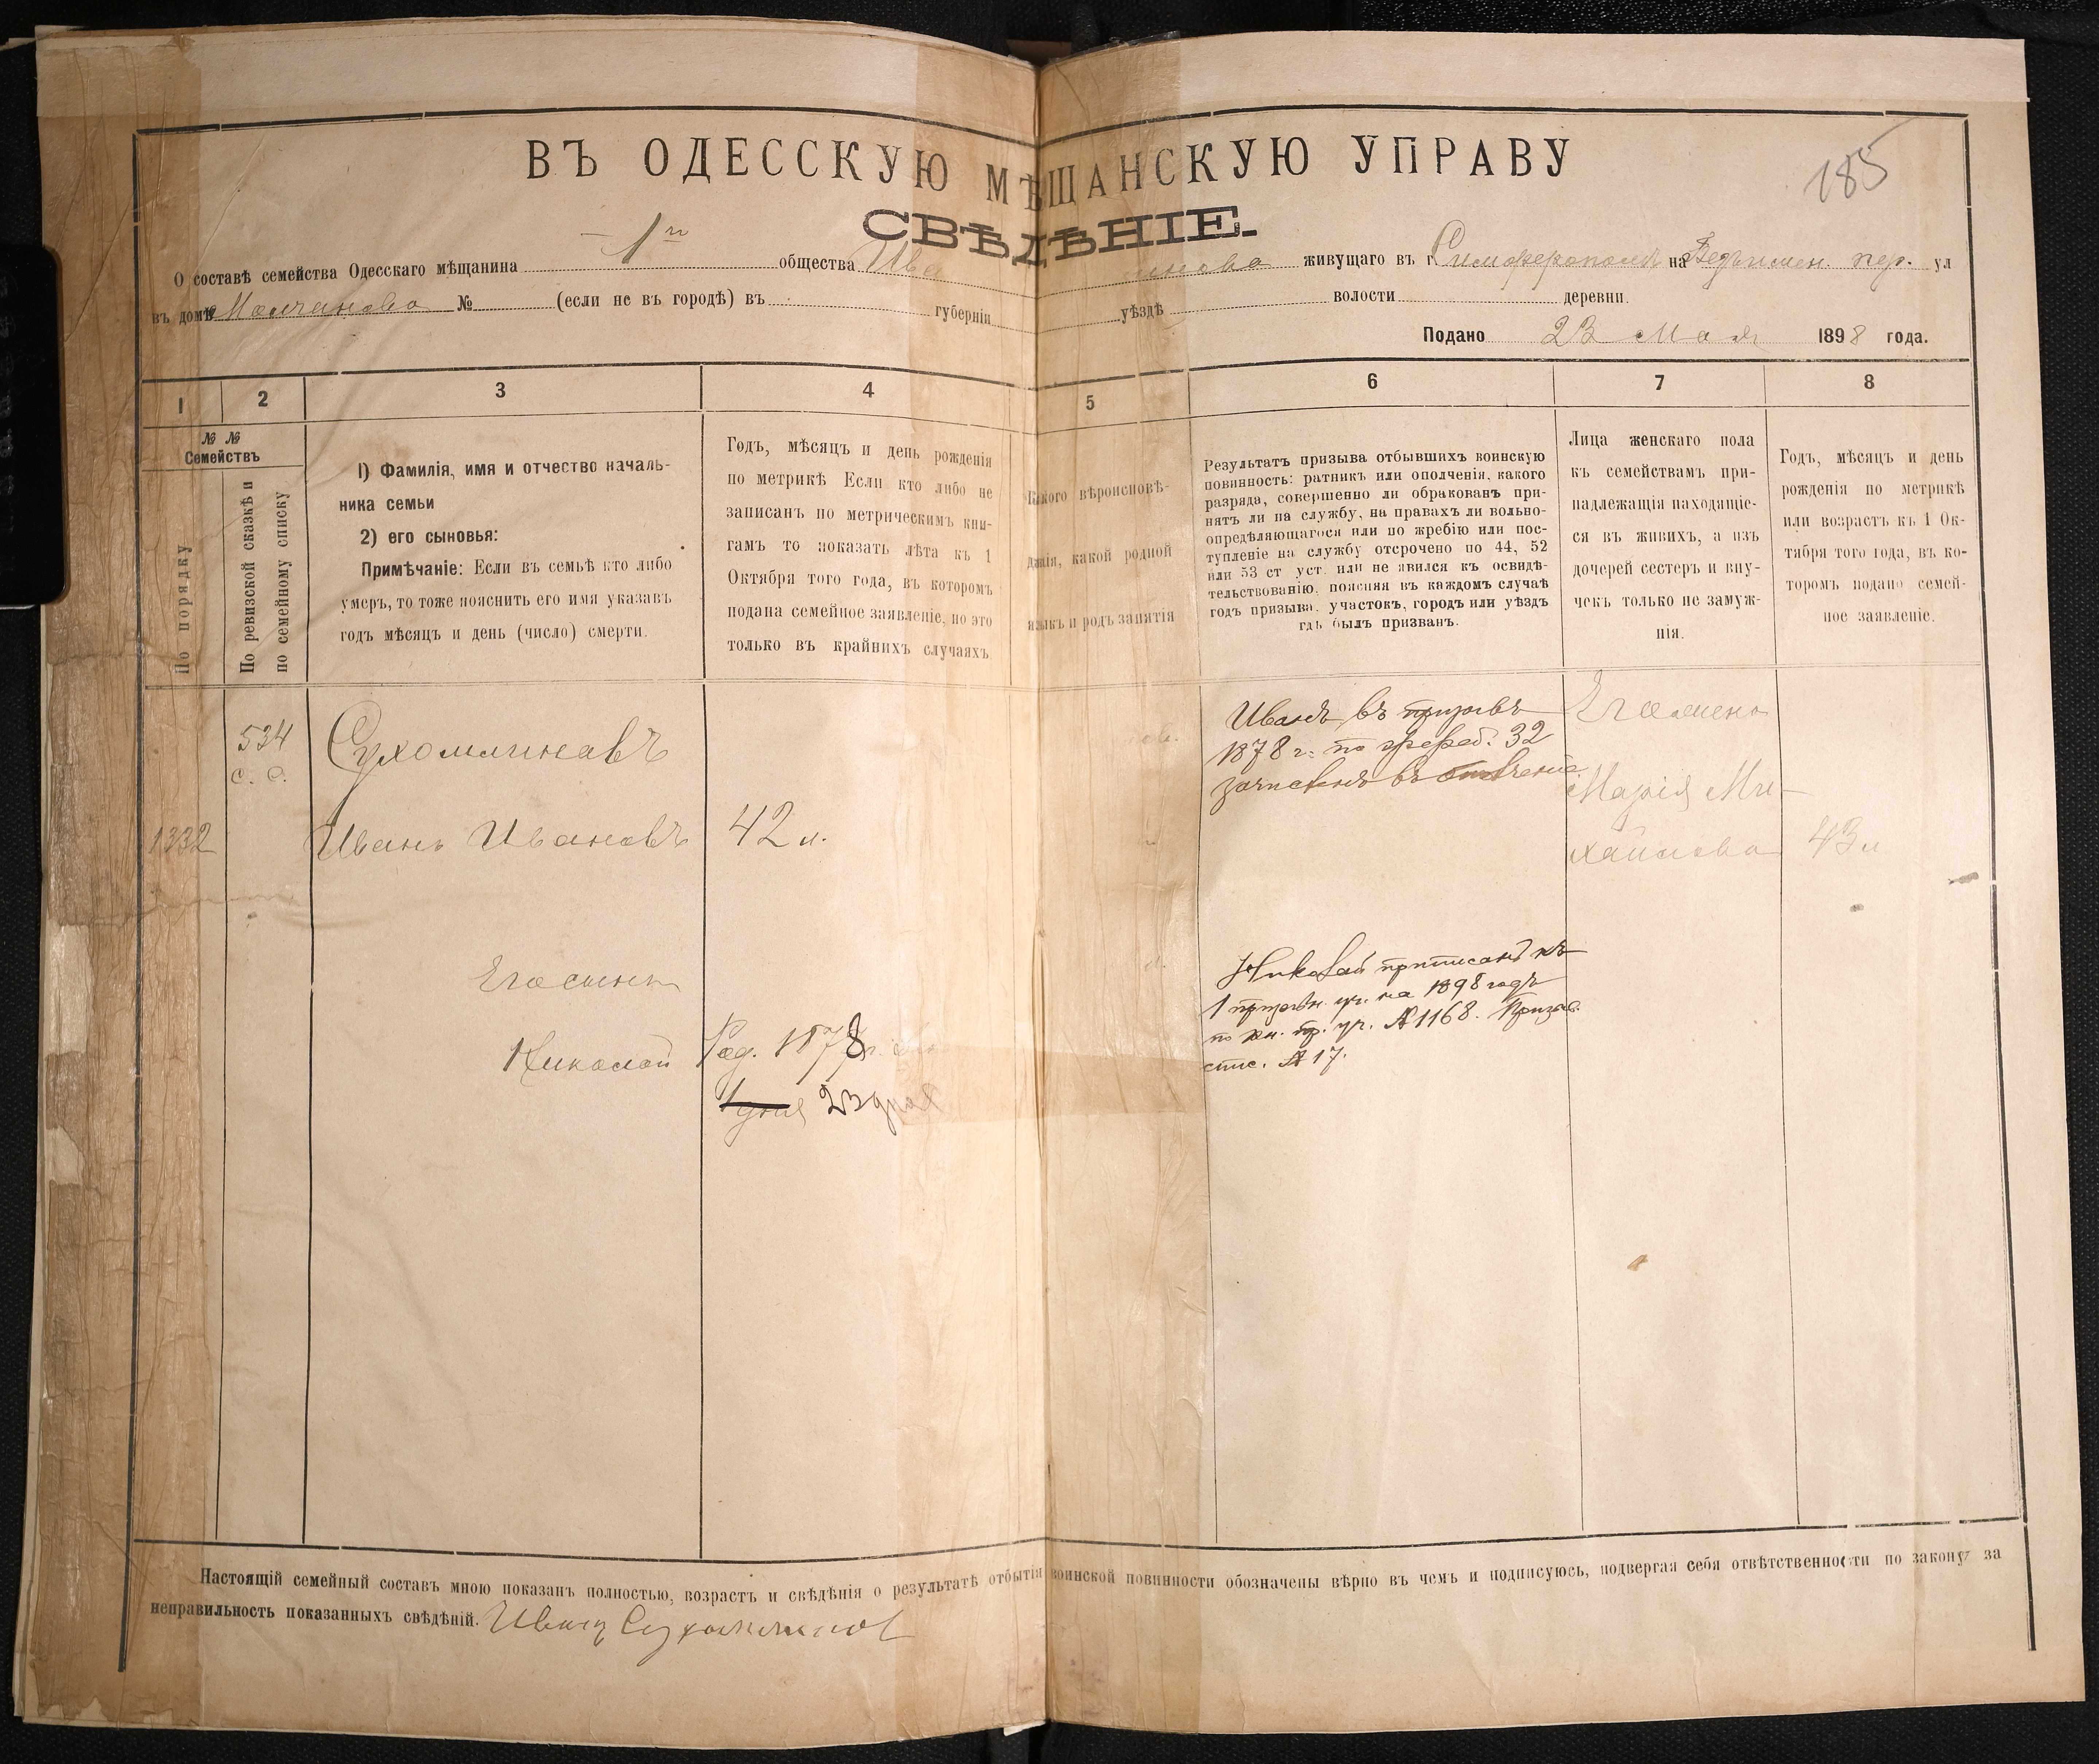 185
ВЪ ОДЕССКУЮ МѢЩАНСКУЮ УПРАВУ
СВѢДѢНІЕ.
О составѣ семейства Одесскаго мѣщанина 1го общества Ива инова живущаго въ г. Симферополѣ на пер. ул
въ домѣ Молчанова № (если не въ городѣ) въ губерніи уѣздѣ волости деревни.
Подано 23 Мая 1898 года.
1 2 3 4 5 6 7 8
№ №
Семействъ
По порядку
По ревизской сказкѣ и
по семейному списку
1) Фамилія, имя и отчество началь-
ника семьи
2) его сыновья:
Примѣчаніе: Если въ семьѣ кто либо
умеръ, то тоже пояснить его имя указавъ
годъ мѣсяцъ и день (число) смерти.
Годъ, мѣсяцъ и день рожденія
по метрикѣ Если кто либо не
записанъ по метрическимъ кни-
гамъ то показать лѣта къ 1
Октября того года, въ которомъ
подана семейное заявленіе, но это
только въ крайнихъ случаяхъ
Какого вѣроисповѣ-
данія, какой родной
языкъ и родъ занятія
Результатъ призыва отбывшихъ воинскую
повинность: ратникъ или ополченія, какого
разряда, совершенно ли обракованъ при-
нятъ ли на службу, на правахъ ли вольно-
опредѣляющагося или по жребію или пос-
тупленіе на службу отсрочено по 44, 52
или 53 ст уст. или не явился къ освидѣ-
тельствованію, поясняя въ каждомъ случаѣ
годъ призыва, участокъ, городъ или уѣздъ
гдѣ былъ призванъ.
Лица женскаго пола
къ семействамъ при-
надлежащія находящіе-
ся въ живихъ, а изъ
дочерей сестеръ и вну-
чекъ только не замуж-
нія.
Годъ, мѣсяцъ и день
рожденія по метрикѣ
или возрастъ къ 1 Ок-
тября того года, въ ко-
торомъ подано семей-
ное заявленіе.
534
с. с.
Сухомлиновъ
1332
Иванъ Ивановъ
42 л.
Иванъ въ призывъ
1878 г. по жереб. 32
зачисленъ въ ополченіе.
Его жена
Марія Ми-
хайлова
43 л
Его сынъ
Николай
Род. 1878 г.
Іюня 23 дня
Николай приписанъ къ
1 призывн. уч. на 1898 годъ
по кн. пр. уч. № 1168. Призыв.
спис. № 17.
Настоящій семейный составъ мною показанъ полностью, возрастъ и свѣдѣнія о результатѣ отбытія воинской повинности обозначены вѣрно въ чемъ и подписуюсь, подвергая себя отвѣтственности по закону за
неправильность показанныхъ свѣдѣній. Иванъ Сухомлинов